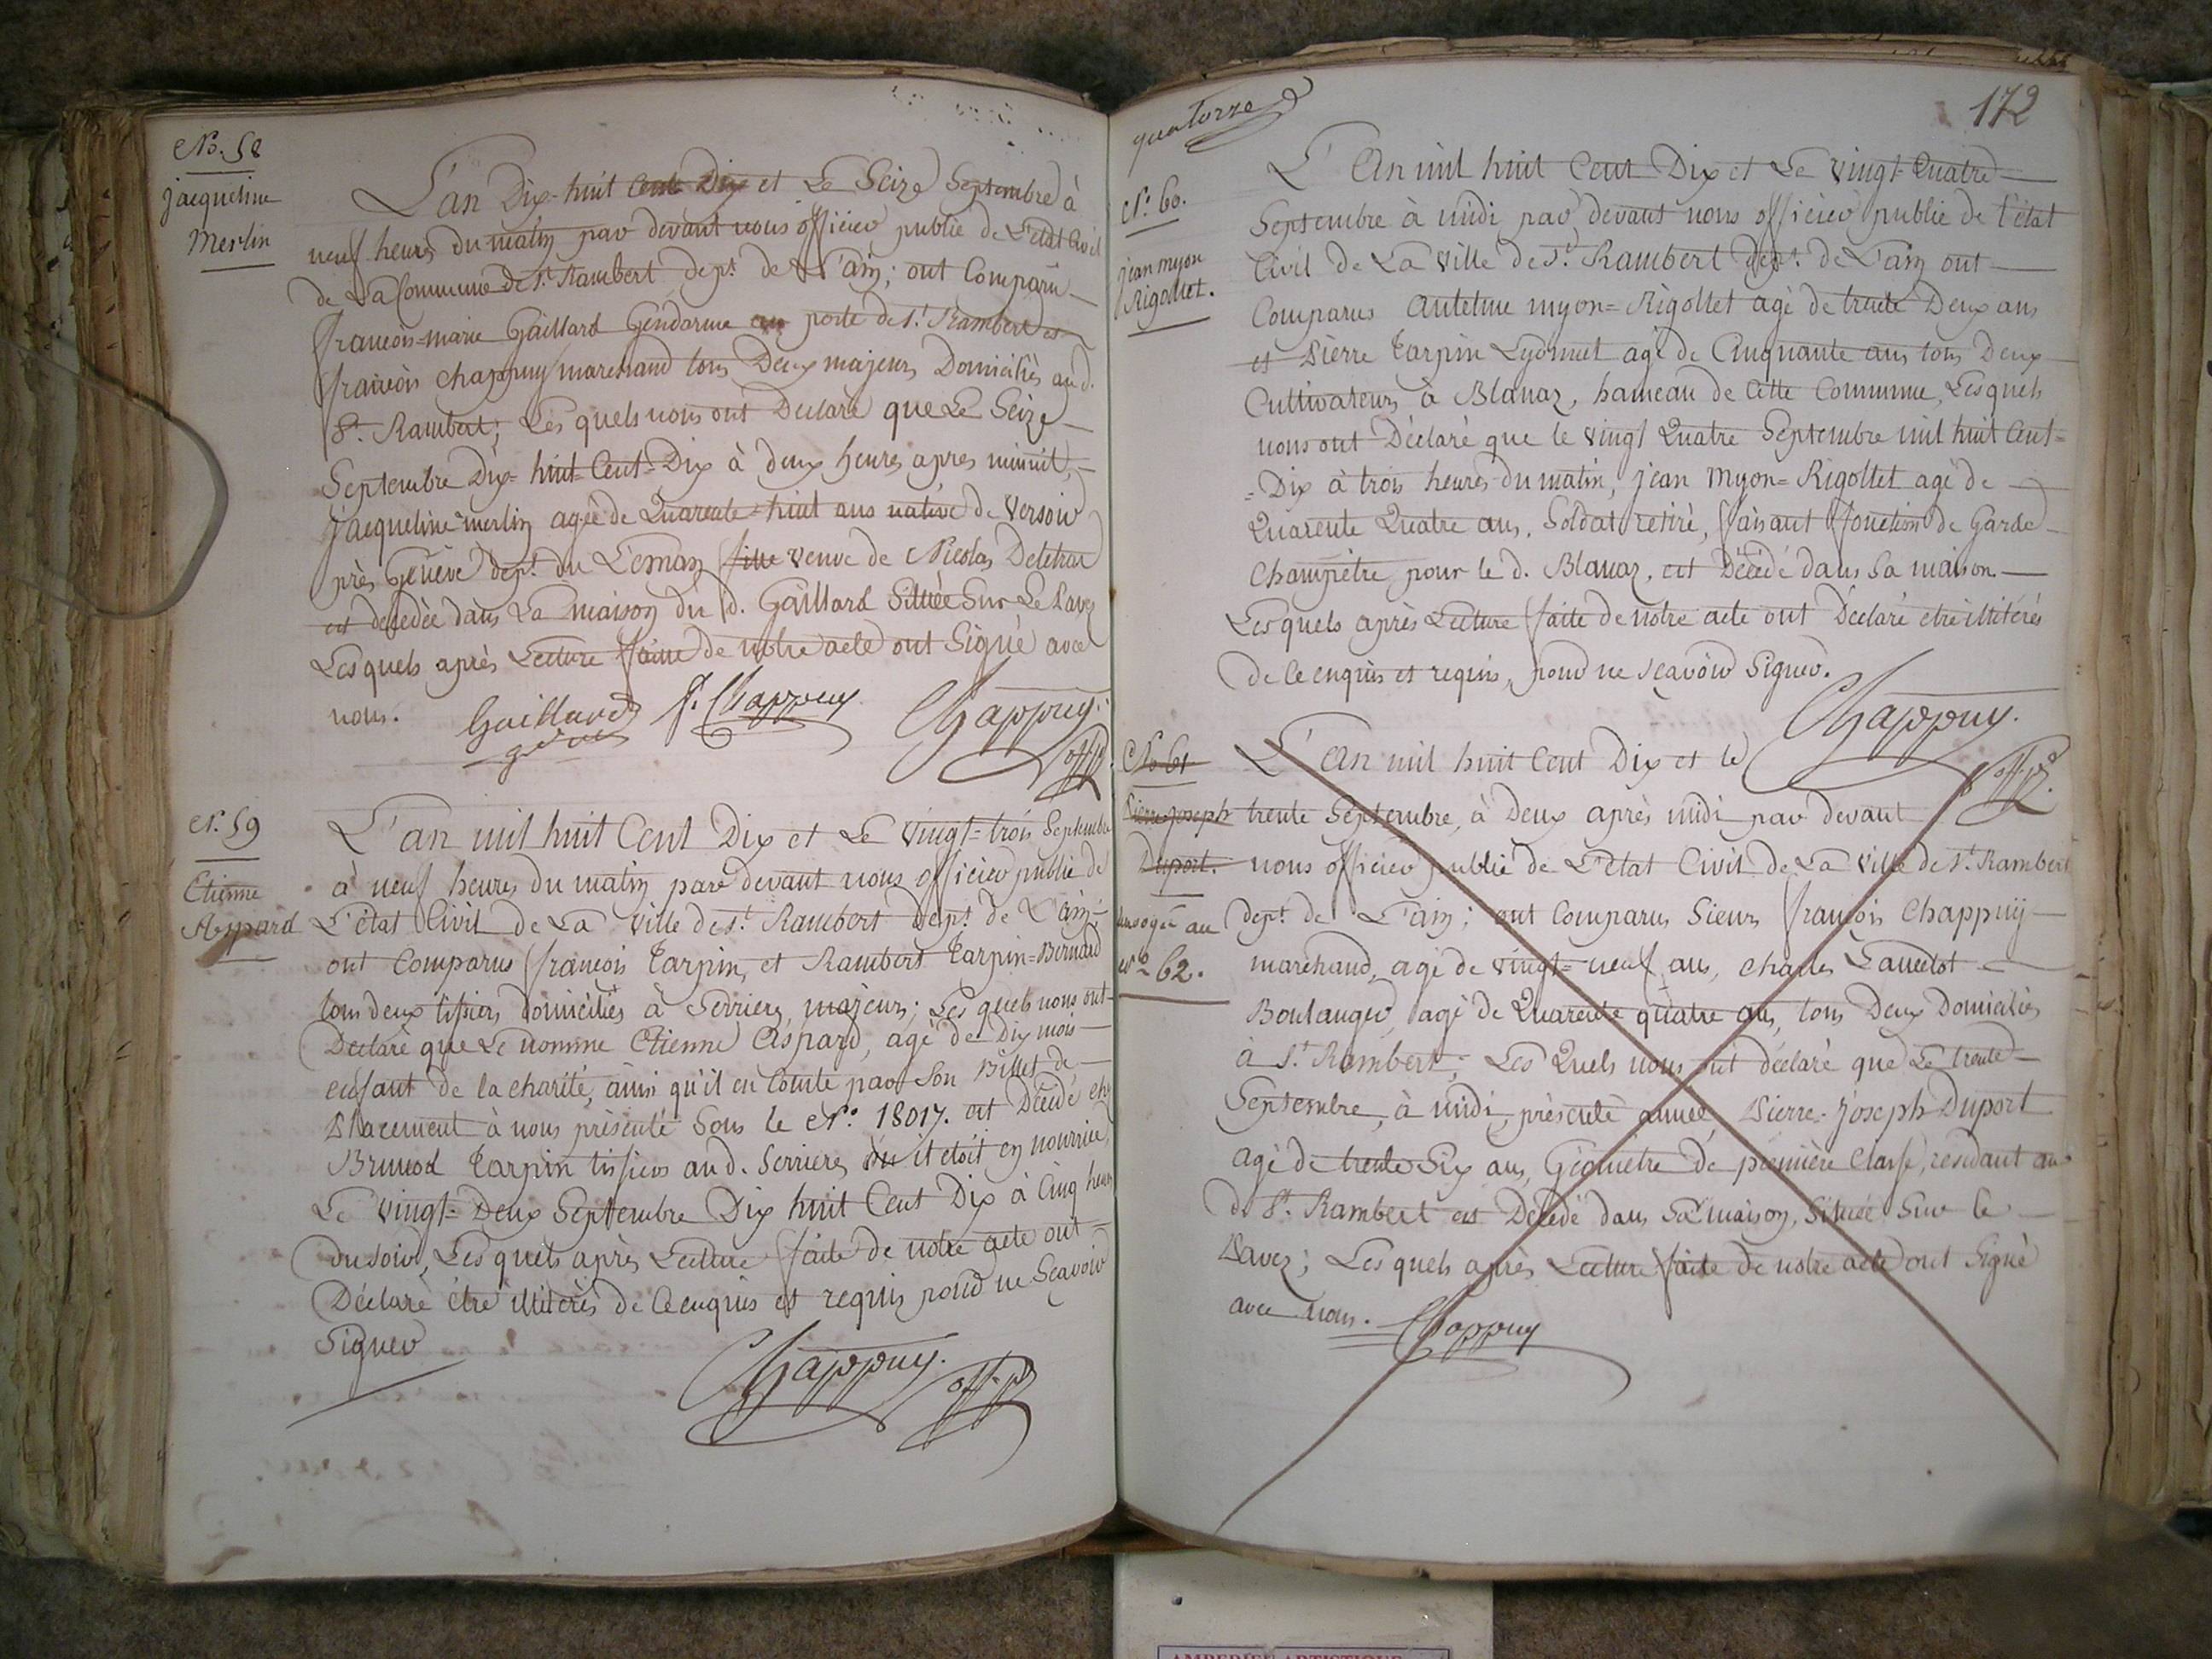 No. 58
jacqueline
Merlin
L'an Dix-huit Cent Dix et Le Seize Septembre à
neuf heures du matin par devant nous officier public de L'etat Civil
de La Commune de St. Rambert dept. de L'ain; ont Comparu
francois-marie Gaillard Gendarme au poste de St. Rambert et
francois chappuy marchand tous Deux majeurs Domiciliés aud.
St. Rambert; Les quels nous ont Declaré que Le Seize
Septembre Dix-huit-Cent-Dix à deux heures apres minuit,
jacqueline merlin agée de Quarente-huit ans native de Versoir
près Genève dept. du Leman fille veuve de Nicolas Deletraz
est decedée dans La maison du d. Gaillard Située Sur Le Pavez
Lesquels après Lecture faite de notre acte ont Signé avec
nous. Gaillard f. Chappuy Chappuy.
off. p.
N. 59
Etienne
Aspard
L'an mil huit Cent Dix et Le vingt-trois Septembre
à neuf heures du matin par devant nous officier public de
L'état Civil de La Ville de St. Rambert dept. de L'ain
ont Comparus francois Tarpin, et Rambert Tarpin-Bernard
tous deux tissiers domiciliés à Serrieres, majeurs; Les quels nous ont
Declaré que Le nommé Etienne Aspard, agé de Dix mois
enfant de la charité, ainsi qu'il en Conste par Son Billet de
Placement à nous présenté Sous le No. 18017. est Décédé chez
Brunod Tarpin tissier au d. Serrieres où il etoit en nourrice,
Le vingt-Deux Septembre Dix huit Cent Dix à Cinq heures
du soir, Les quels après Lecture faite de notre acte ont
Déclaré être illitérés de Ce enquis et requis pour ne Sçavoir
Signer
Chappuy. off. p.
quatorze
172
N. 60.
jean myon
Rigollet.
L'An mil huit Cent Dix et Le vingt-Quatre
Septembre à midi par devant nous officier public de l'état
Civil de La Ville de St. Rambert dept. de L'ain ont
Comparus Antelme myon=Rigollet agé de trente Deux ans
et Pierre Tarpin Lyonnet agé de Cinquante ans tous Deux
Cultivateurs à Blanaz, hameau de Cette Commune, Lesquels
nous ont Déclaré que le vingt Quatre Septembre mil huit Cent=
=Dix à trois heures du matin, jean Myon=Rigollet agé de
Quarente Quatre ans, Soldat retiré, faisant fonction de Garde
Champêtre pour le d. Blanaz, est Décédé dans Sa maison.
Lesquels après Lecture faite de notre acte ont Declaré etre illitérés
de Ce enquis et requis, pour ne sçavoir Signer.
Chappuy.
off. p.
No 61
Pierre-Joseph
Duport.
au
No 62.
L'An mil huit Cent Dix et le
trente Septembre, à Deux après midi par devant
nous officier public de L'etat Civil de La Ville de St. Rambert
dept. de L'ain; ont Comparus Sieurs francois Chappuy
marchand, agé de vingt-neuf ans, Charles Lancelot
Boulanger, agé de Quarente quatre ans, tous Deux Domiciliés
à St. Rambert; Les Quels nous ont déclaré que Le trente
Septembre, à midi, présente année, Pierre-Joseph Duport
agé de trente Six ans, Géometre de première Classe, residant au
d. St. Rambert est Décédé dans Sa maison, Située Sur le
Pavez; Les quels après Lecture faite de notre acte ont Signé
avec nous. Chappuy
AMBERIEU ARTISTIQUE